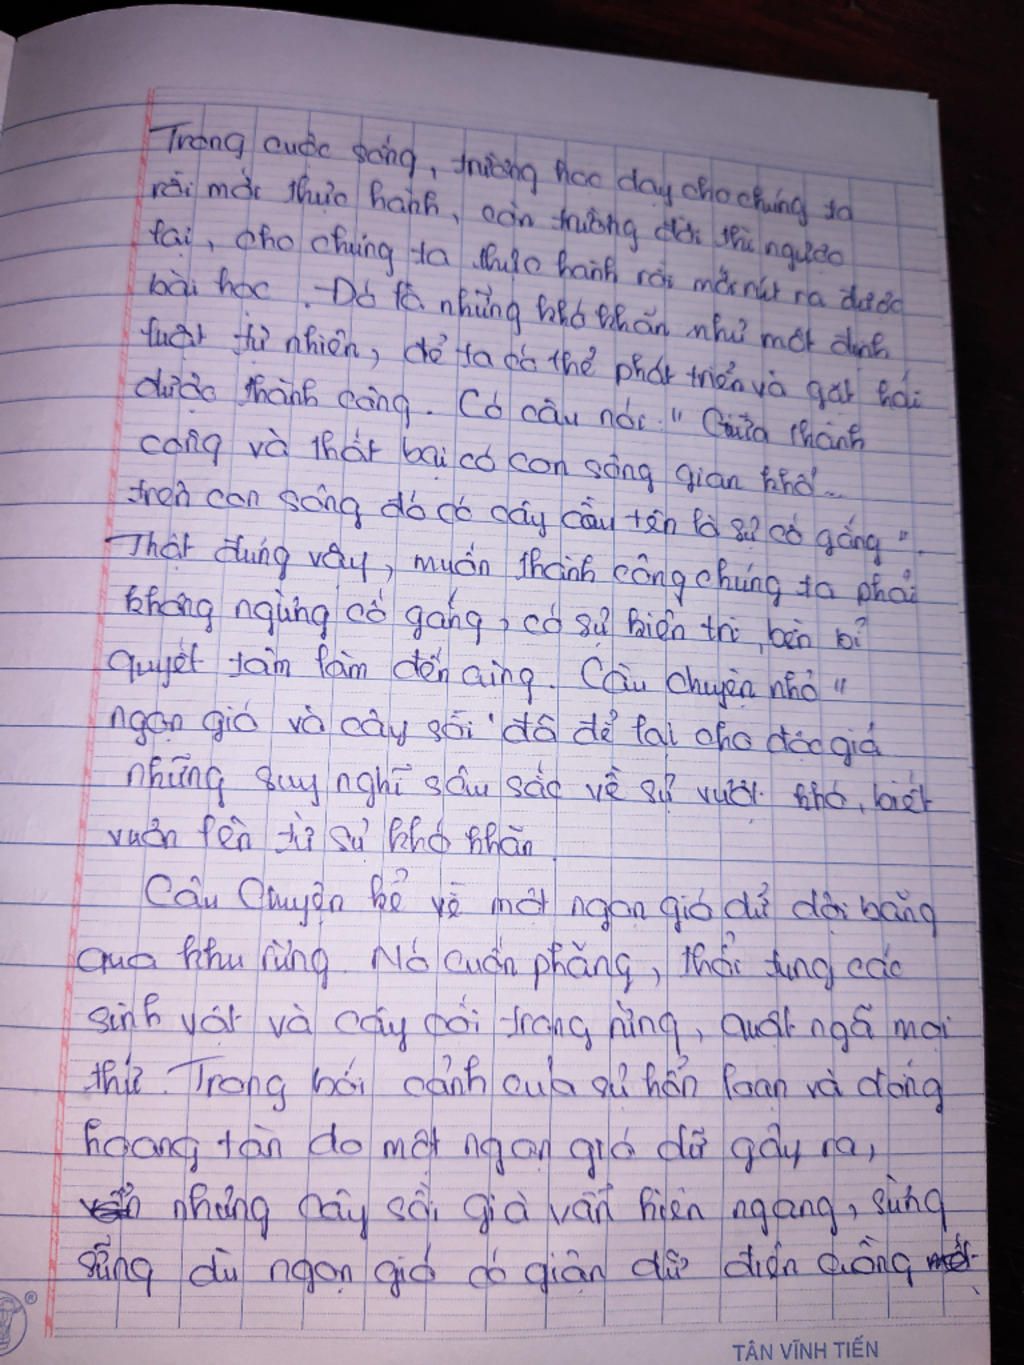 Trong cuộc sống, trường học dạy cho chúng ta
rồi mới thực hành, còn trường đời thì ngược
lại, cho chúng ta thực hành rồi mới rút ra được
bài học. Đó là những khó khăn như một định
luật tự nhiên, để ta có thể phát triển và gặt hái
được thành công. Có câu nói " Giữa thành
công và thất bại có con sông gian khổ..
trên con sông đó có cây cầu tên là sự cố gắng ".
Thật đúng vậy, muốn thành công chúng ta phải
không ngừng cố gắng, có sự kiên trì, bền bỉ
quyết tâm làm đến cùng. Câu chuyện nhỏ "
ngọn gió và cây sồi" đã để lại cho độc giả
những suy nghĩ sâu sắc về sự vượt khó, biết
vươn lên từ sự khó khăn.
Câu Chuyện kể về một ngọn gió dử dội băng
qua khu rừng. Nó cuốn phăng, thổi tung các
sinh vật và cây cối trong rừng, quật ngã mọi
thứ. Trong bối cảnh của sự hỗn loạn và đống
hoang tàn do một ngọn gió dữ gây ra,
nhưng cây sồi già vẫn hiên ngang, sừng
sững dù ngọn gió có giận dữ điên cuồng
TÂN VĨNH TIẾN